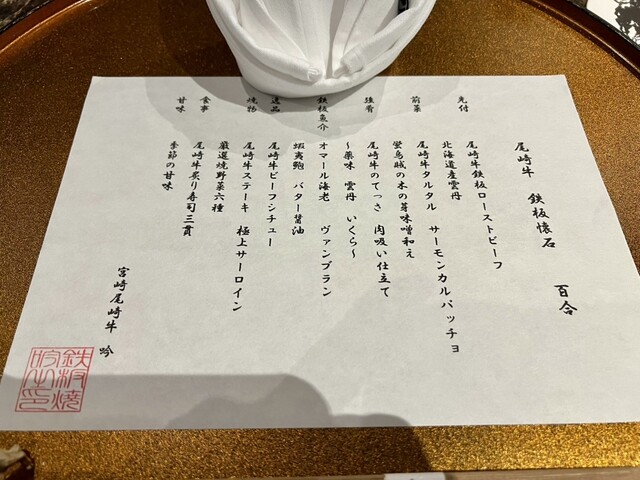 尾崎牛 鉄板懐石 百合
先付 尾崎牛鉄板ローストビーフ
北海道産雲丹
前菜 尾崎牛タルタル サーモンカルパッチョ
蛍烏賊の木の芽味噌和え
強肴 尾崎牛のてっさ 肉吸い仕立て
~薬味 雲丹 いくら~
鉄板魚介 オマール海老 ヴァンブラン
蝦夷鮑 バター醤油
逸品 尾崎牛ビーフシチュー
焼物 尾崎牛ステーキ 極上サーロイン
厳選焼野菜六種
食事 尾崎牛炙り寿司三貫
甘味 季節の甘味
宮崎尾崎牛 吟
鉄板焼
吟之印